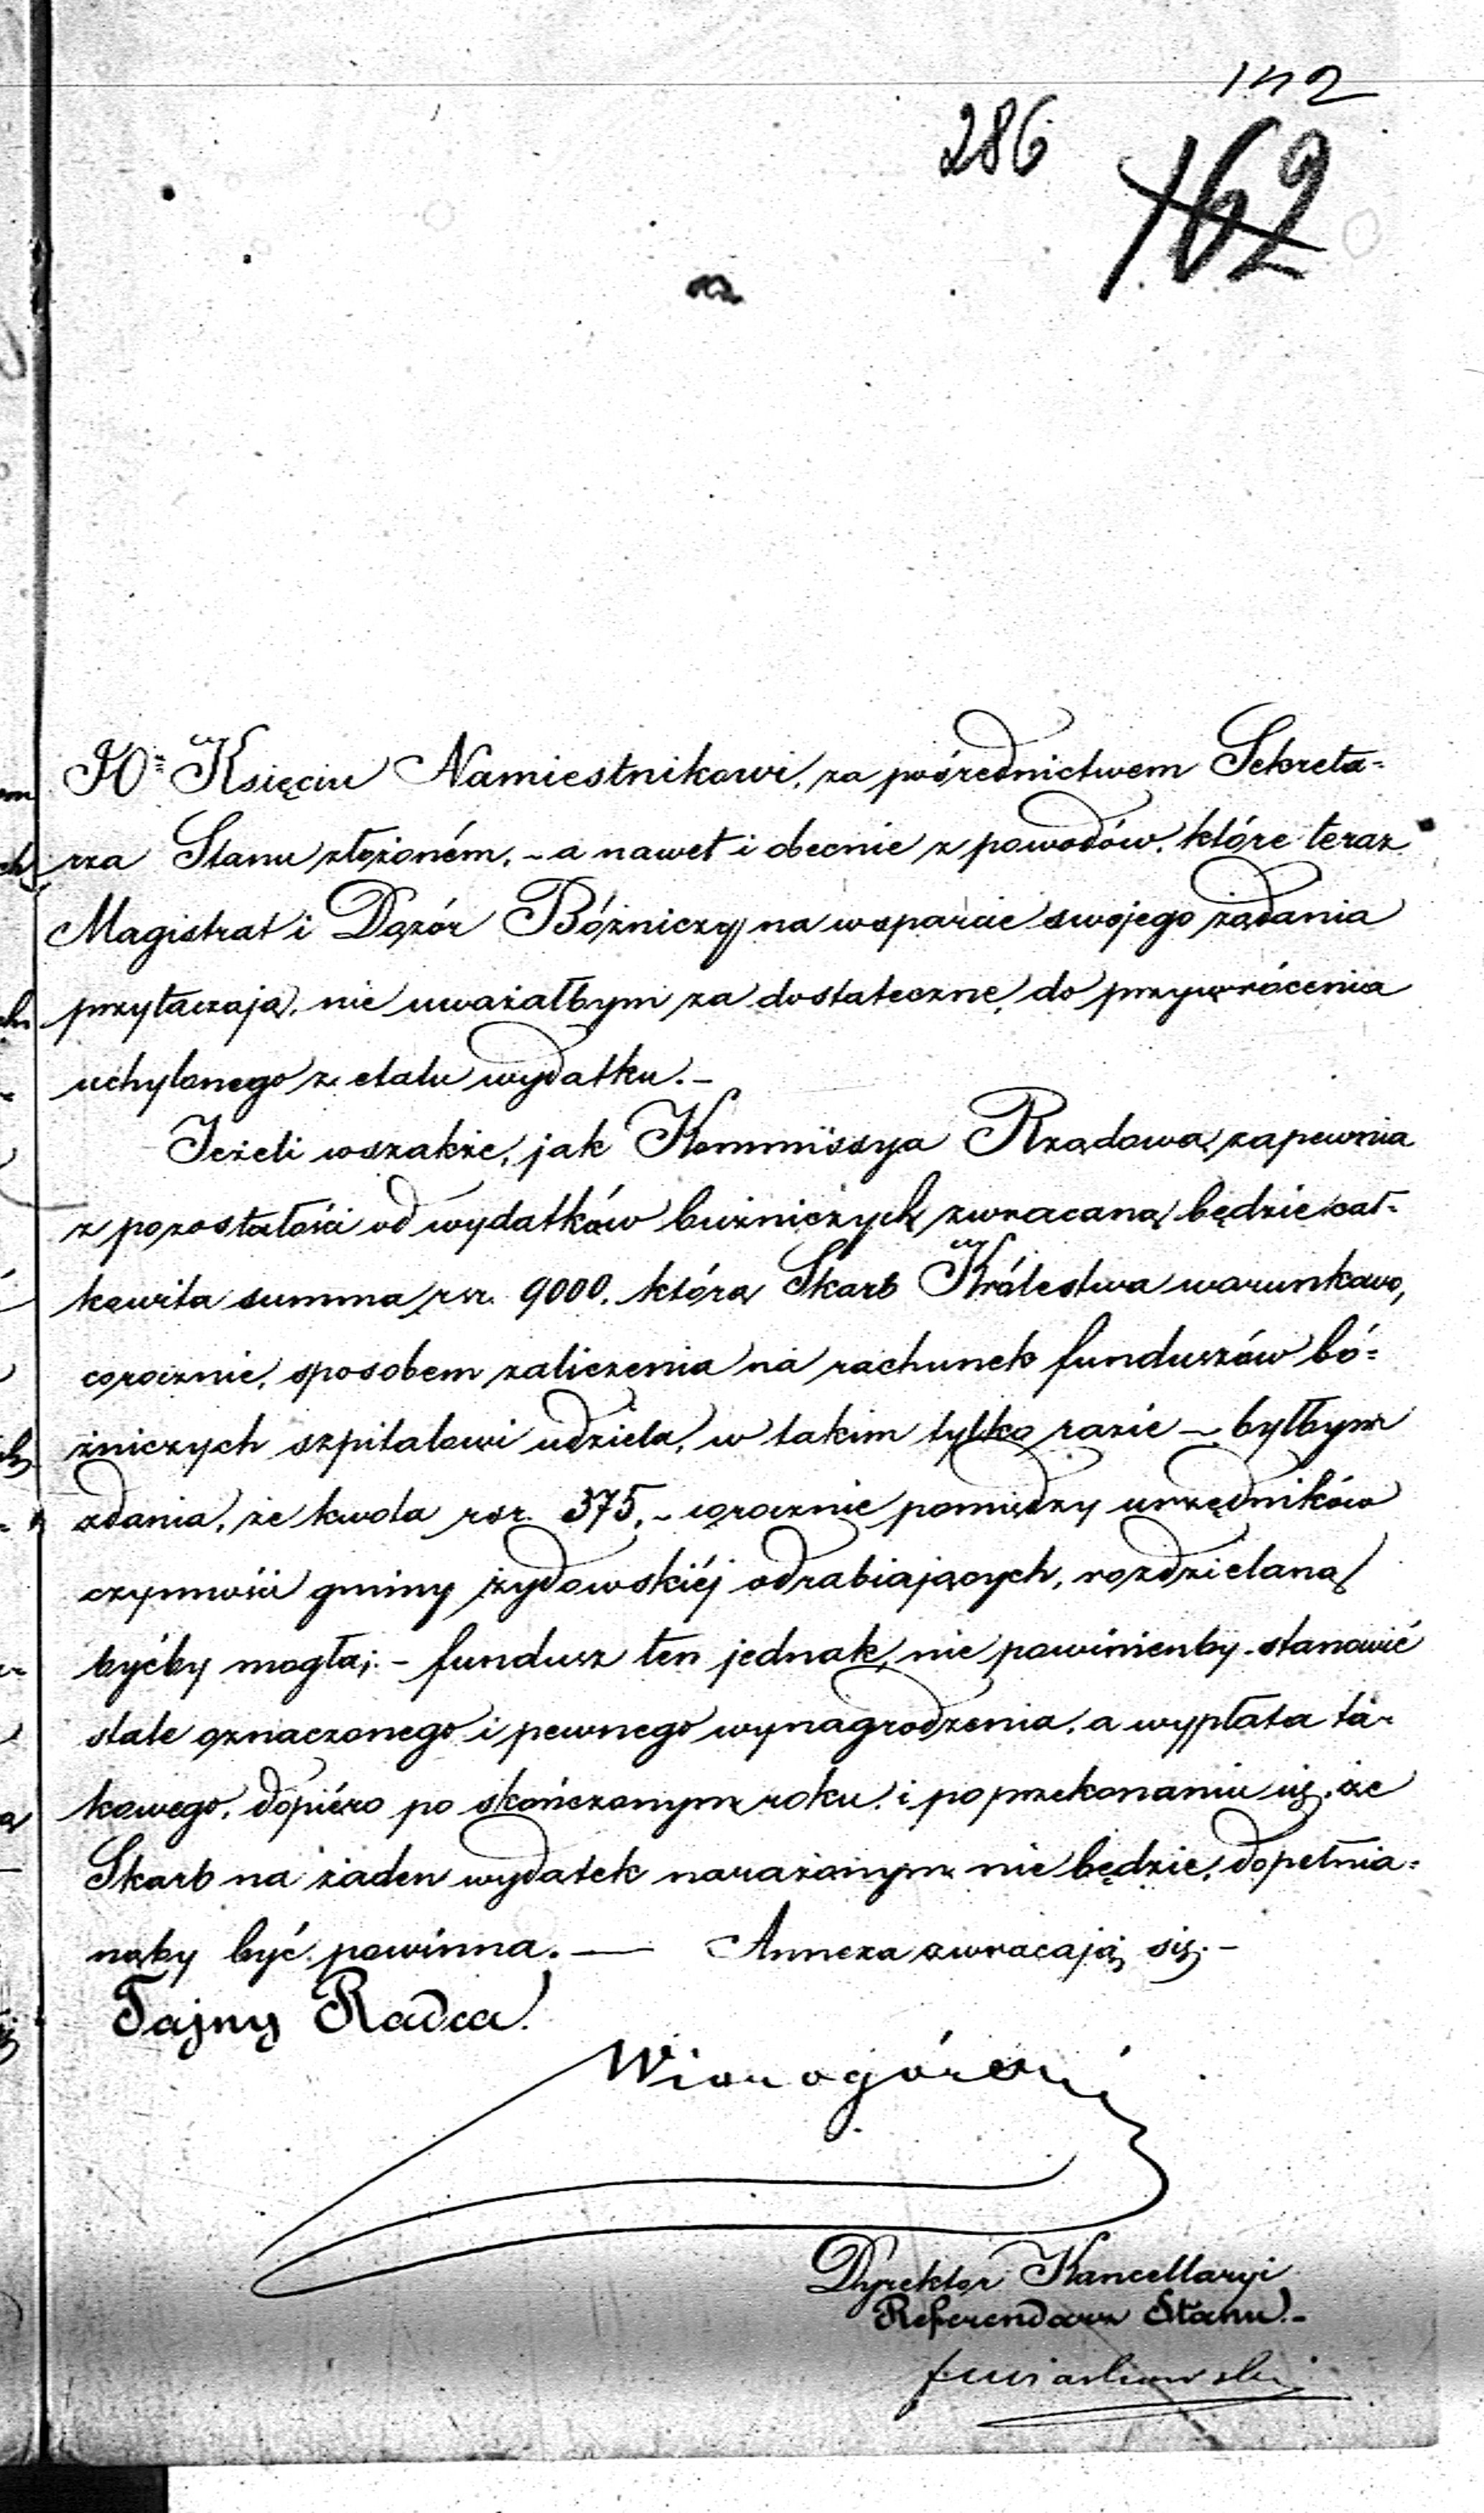 142
286
162
JO= Księciu Namiestnikowi, za pośrednictwem Sekreta=
rza Stanu złożoném, - a nawet i obecnie z powodów, które teraz
Magistrat i Dozór Bóżniczy na wsparcie swojego żądania
przytaczają, nie uważałbym za dostateczne, do przywrócenia
uchylonego z etatu wydatku. -
Jeżeli wszakże, jak Kommissya Rządowa zapewnia
z pozostałości od wydatków bużniczych zwracaną będzie cał-
kowita summa rsr. 9000. którą Skarb Królestwa warunkowo,
corocznie, sposobem zaliczenia na rachunek funduszów bó=
żniczych szpitalowi udziela, w takim tylko razie - byłbym
zdania, że kwota rsr. 375, - corocznie pomiędzy urzędników
czynności gminy żydowskiéj odrabiających, rozdzielaną
byćby mogła; - fundusz ten jednak, nie powinienby stanowić
stale oznaczonego i pewnego wynagrodzenia, a wypłata ta-
kowego, dopiéro po skończonym roku i po przekonaniu się, że
Skarb na żaden wydatek narażonym nie będzie, dopełnia=
naby być powinna. — Annexa zwracają się. -
Tajny Radca
Dyrektor Kancellaryi
Referendarz Stanu. -